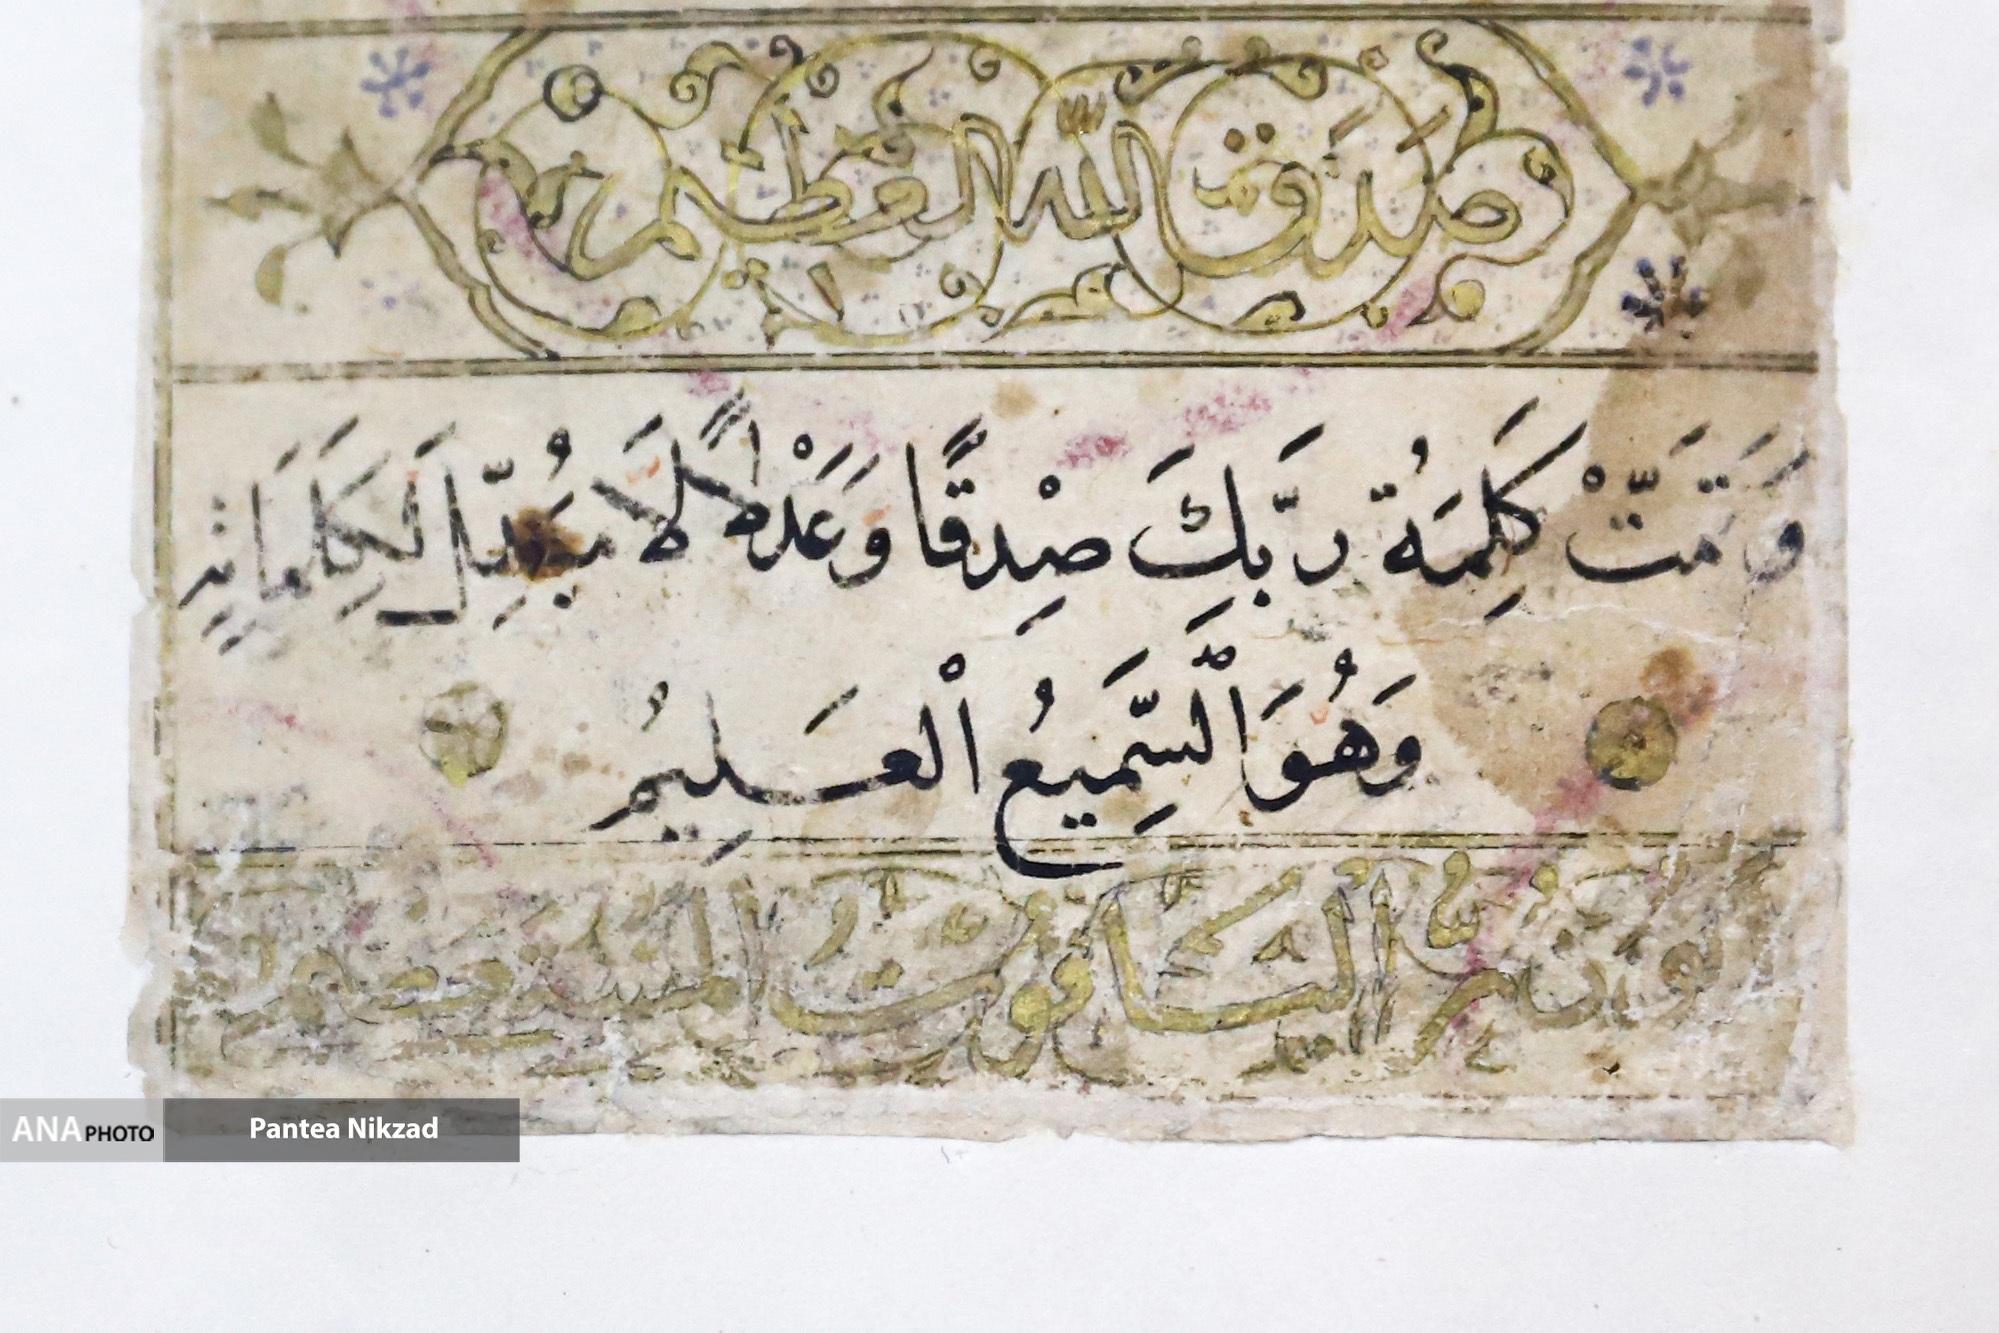 صدق الله العظيم
وَتَمَّتْ كَلِمَةُ رَبِّكَ صِدْقًا وَعَدْلًا لَا مُبَدِّلَ لِكَلِمَاتِهِ
وَهُوَ السَّمِيعُ الْعَلِيمُ
ياقوت المستعصمي
ANA PHOTO
Pantea Nikzad